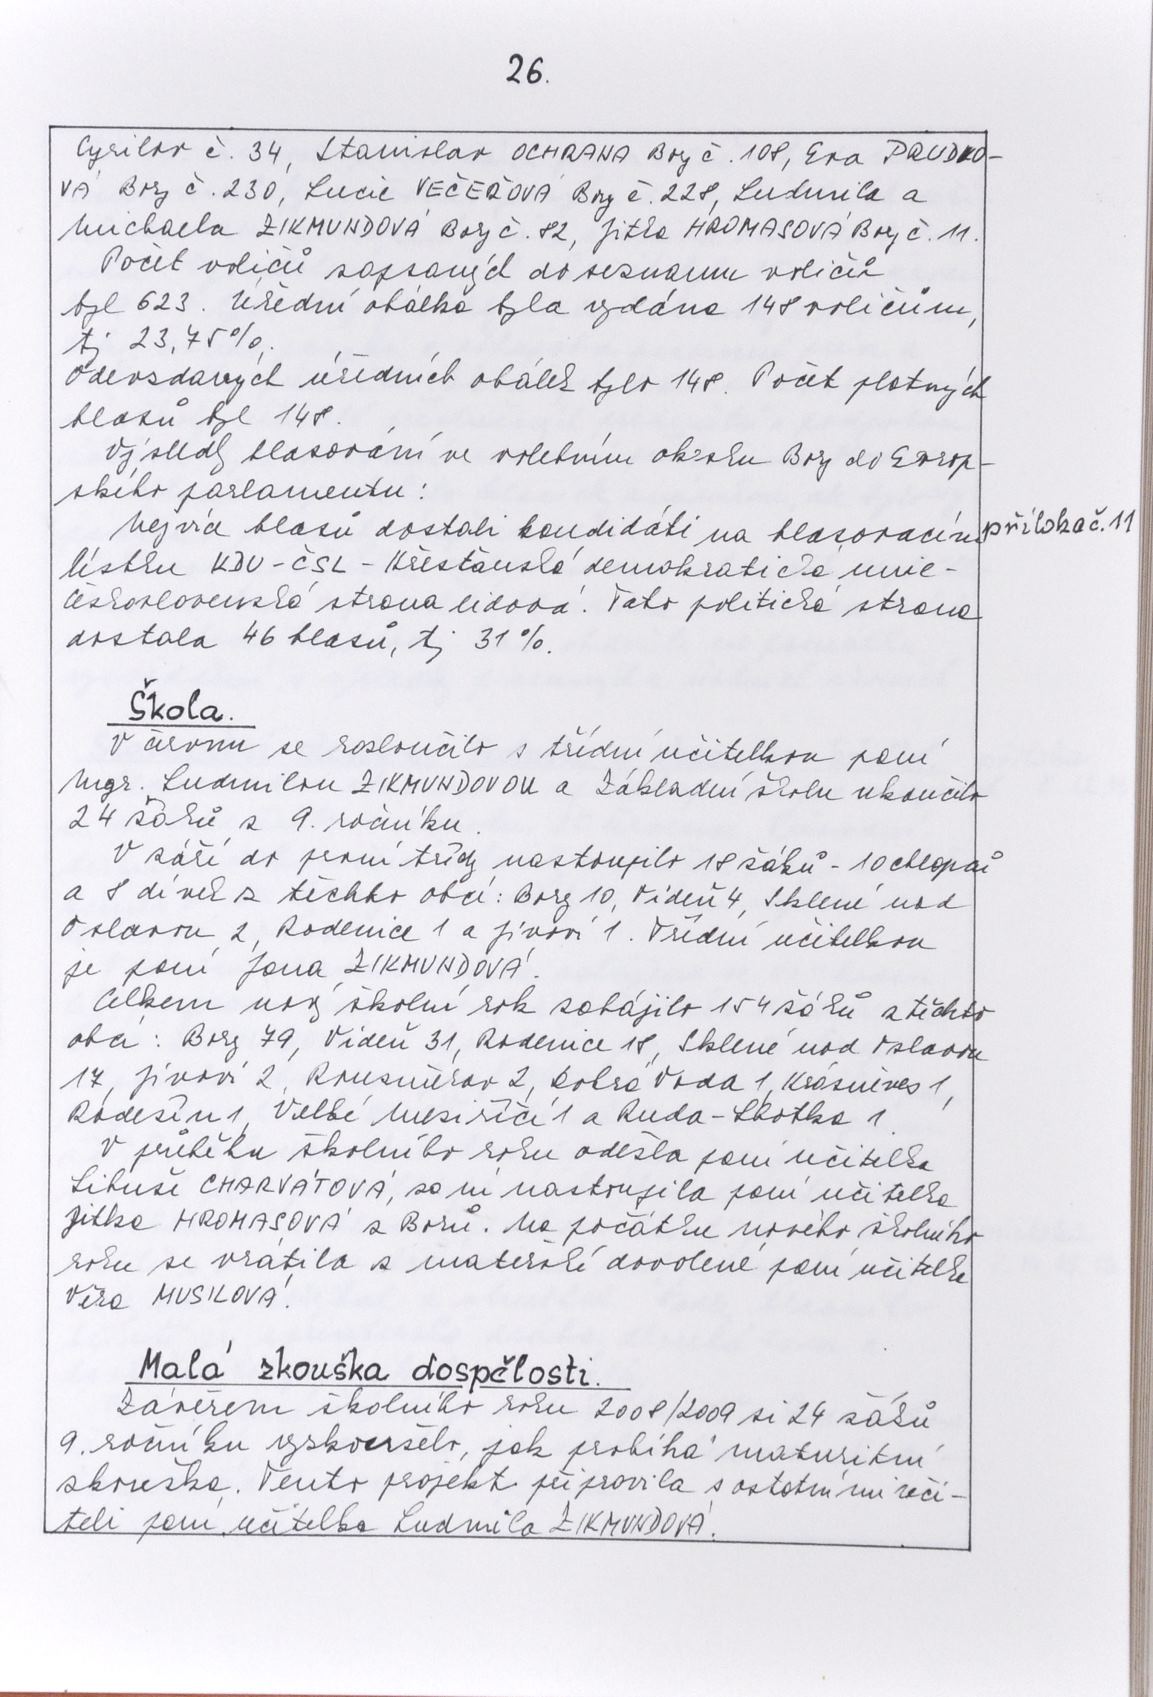 26.
Cyrilov č. 34, Stanislav OCHRANA Bory č. 108, Eva PRUDKO-
VÁ Bory č. 230, Lucie VEČEŘOVÁ Bory č. 228, Ludmila a
Michaela ZIKMUNDOVÁ Bory č. 82, Jitka HROMASOVÁ Bory č. 11.
Počet voličů zapsaných do seznamu voličů
byl 623. Úřední obálka byla vydána 148 voličům,
tj 23,75%.
Odevzdaných úředních obálek bylo 148. Počet platných
hlasů byl 148.
Výsledky hlasování ve volebním okrsku Bory do Evrop-
ského parlamentu:
Nejvíce hlasů dostali kandidáti na hlasovacím
příloha č. 11
lístku KDU-ČSL - Křesťanská demokratická unie -
Československá strana lidová. Tato politická strana
dostala 46 hlasů, tj 31%.
Škola.
V červnu se rozloučilo s třídní učitelkou paní
Mgr. Ludmilou ZIKMUNDOVOU a Základní školu ukončilo
24 žáků z 9. ročníku.
V září do první třídy nastoupilo 18 žáků - 10 chlapců
a 8 dívek z těchto obcí: Bory 10, Vídeň 4, Sklené nad
Oslavou 2, Radenice 1 a Jívoví 1. Třídní učitelkou
je paní Jana ZIKMUNDOVÁ.
Celkem nový školní rok zahájilo 154 žáků z těchto
obcí: Bory 79, Vídeň 31, Radenice 18, Sklené nad Oslavou
17, Jívoví 2, Rousměrov 2, Dobrá Voda 1, Krásněves 1,
Radešín 1, Velké Meziříčí 1 a Ruda-Lhotka 1
V průběhu školního roku odešla paní učitelka
Libuše CHARVÁTOVÁ, za ní nastoupila paní učitelka
Jitka HROMASOVÁ z Borů. Na počátku nového školního
roku se vrátila z mateřské dovolené paní učitelka
Věra MUSILOVÁ.
Malá zkouška dospělosti.
Závěrem školního roku 2008/2009 si 24 žáků
9. ročníku vyzkoušelo, jak probíhá maturitní
zkouška. Tento projekt připravila s ostatními uči-
teli paní učitelka Ludmila ZIKMUNDOVÁ.